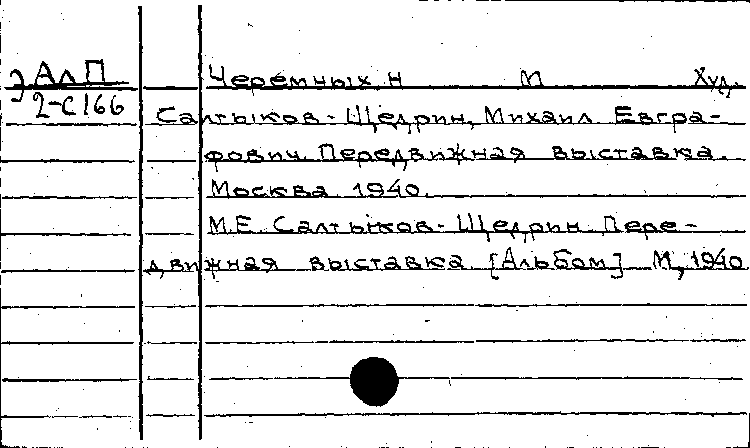 Э АлП Черемных Н М Худ.
2-С166
Салтыков-Щедрин, Михаил Евгра-
фович. Передвижная выставка.
Москва 1940.
М.Е. Салтыков-Щедрин. Пере-
движная выставка. [Альбом] М, 1940